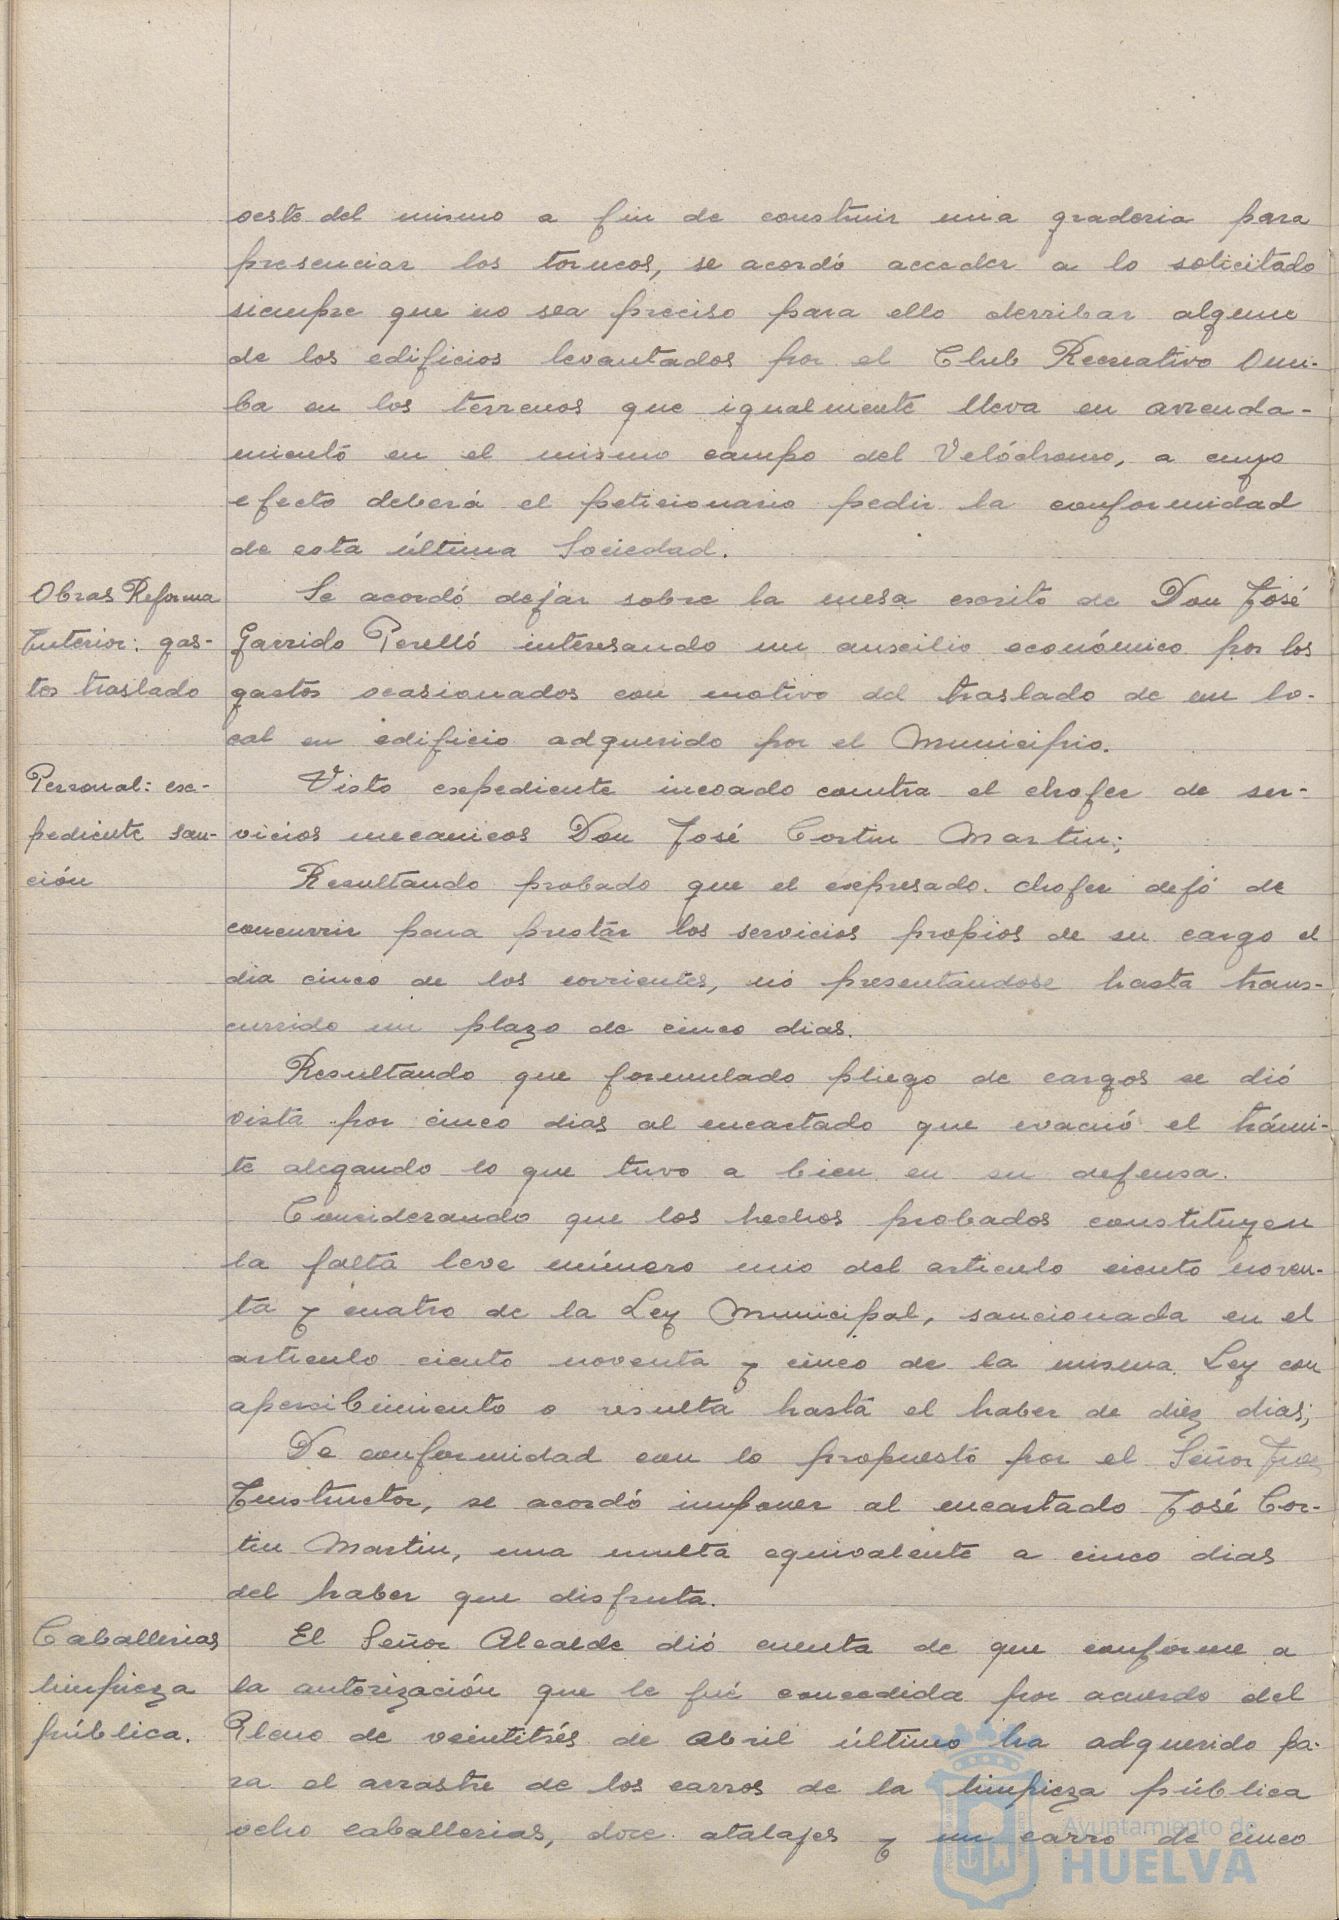 oeste del mismo a fin de construir una graderia para
presenciar los torneos, se acordó acceder a lo solicitado
siempre que no sea preciso para ello derribar alguno
de los edificios levantados por el Club Recreativo Onu-
ba en los terrenos que igualmente lleva en arrenda-
miento en el mismo campo del Velódromo, a cuyo
efecto deberá el peticionario pedir la conformidad
de esta última Sociedad.
Obras Reforma
Interior: gas-
tos traslado
Se acordó dejar sobre la mesa escrito de Don José
Garrido Perelló interesando un auxilio económico por los
gastos ocasionados con motivo del traslado de un lo-
cal en edificio adquerido por el Municipio.
Personal: ex-
pediente san-
ción
Visto expediente incoado contra el chofer de ser-
vicios mecanicos Don José Cortin Martin;
Resultando probado que el expresado chofer dejó de
concurrir para prestar los servicios propios de su cargo el
dia cinco de los corrientes, no presentandose hasta trans-
currido un plazo de cinco dias.
Resultando que formulado pliego de cargos se dió
vista por cinco dias al encartado que evacuó el trámi-
te alegando lo que tuvo a bien en su defensa.
Considerando que los hechos probados constituyen
la falta leve número uno del articulo ciento noven-
ta y cuatro de la Ley Municipal, sancionada en el
articulo ciento noventa y cinco de la misma Ley con
apercibimiento o multa hasta el haber de diez dias;
De conformidad con lo propuesto por el Señor Juez
Instructor, se acordó imponer al encartado José Cor-
tin Martin, una multa equivalente a cinco dias
del haber que disfruta.
Caballerias
limpieza
pública.
El Señor Alcalde dió cuenta de que conforme a
la autorización que le fué concedida por acuerdo del
Pleno de veintitrés de Abril último ha adquerido pa-
ra el arrastre de los carros de la limpieza pública
ocho caballerias, doce atalajes y un carro de cinco
Ayuntamiento de
HUELVA